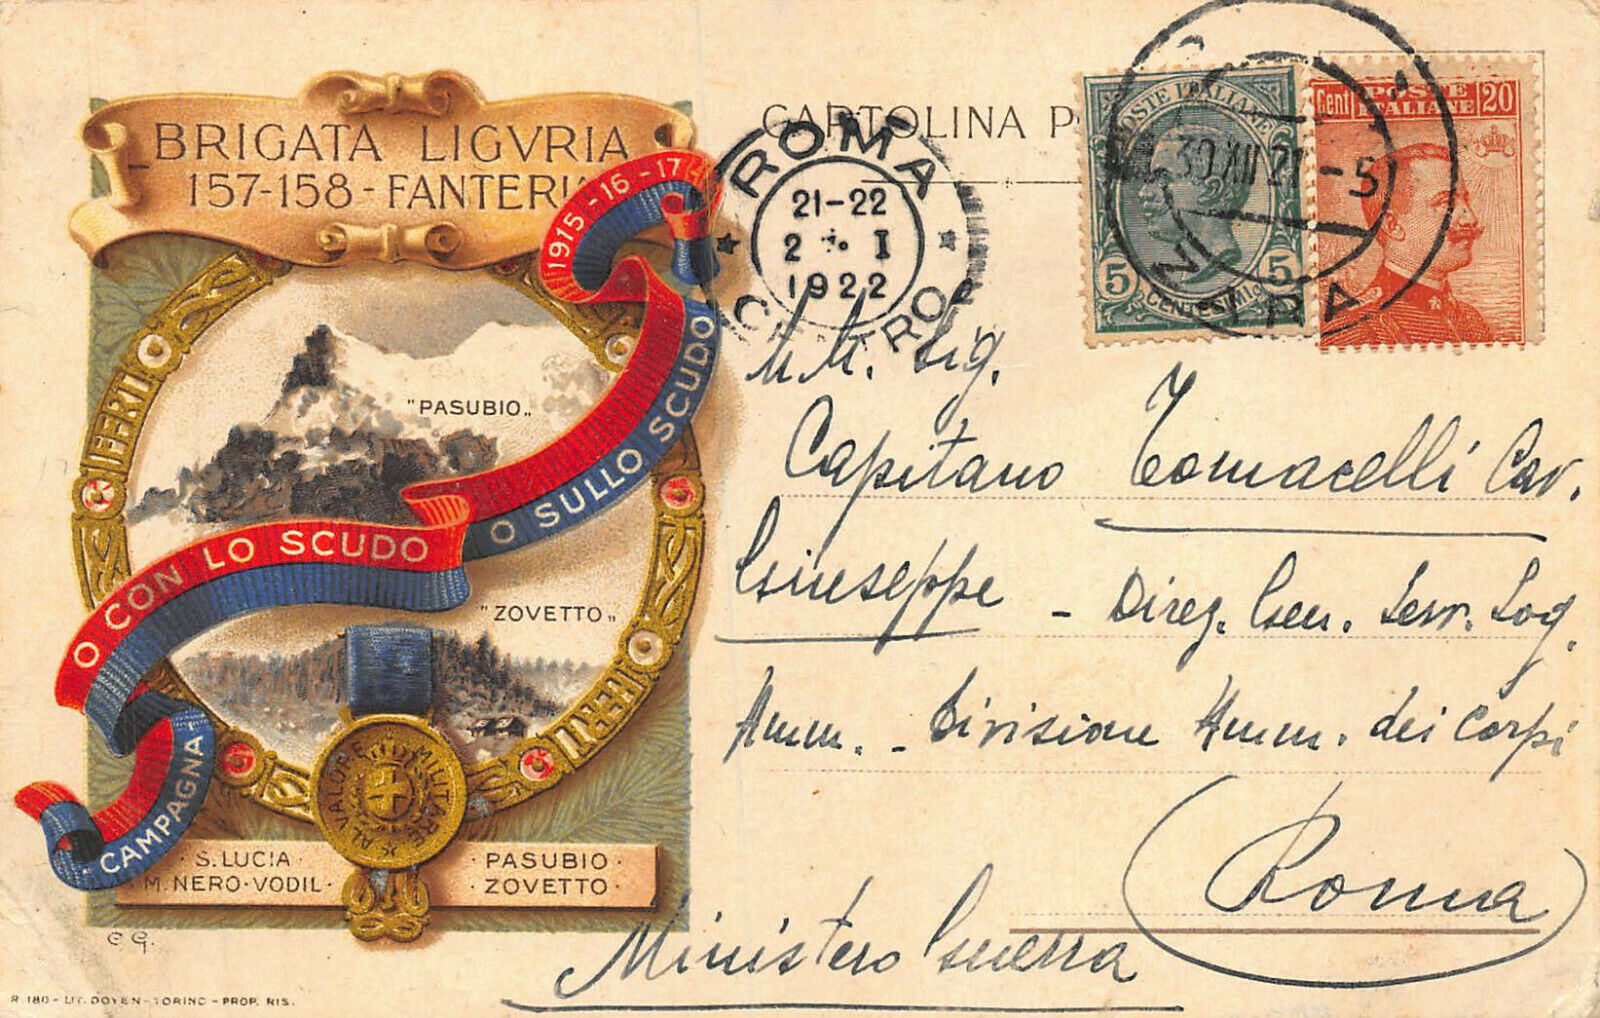 BRIGATA LIGVRIA
157-158-FANTERIA
1915-16-17
"PASUBIO„
O CON LO SCUDO O SULLO SCUDO
"ZOVETTO„
FERT
FERT
CAMPAGNA
AL VALORE MILITARE
· S. LUCIA ·
M. NERO · VODIL ·
PASUBIO ·
ZOVETTO ·
C G.
R. 180 - LIT. DOYEN - TORINO - PROP. RIS.
CARTOLINA P
ROMA
21-22
2 · I
1922
CENTRO
POSTE ITALIANE
5 5
CENTESIMI
Cent POSTE ITALIANE 20
30 XII 21 - 5
Sig.
Capitano Tomacelli Cav.
Giuseppe - Direz. Gen. Serv. Log.
Amm. - Divisione Amm. dei Corpi
Roma
Ministero Guerra